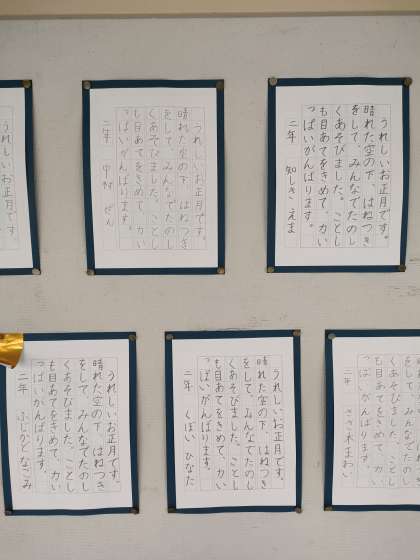 うれしいお正月です。
晴れた空の下、はねつき
をして、みんなでたのし
くあそびました。ことし
も目あてをきめて、力い
っぱいがんばります。
二年 知しき えま
うれしいお正月です。
晴れた空の下、はねつき
をして、みんなでたのし
くあそびました。ことし
も目あてをきめて、力い
っぱいがんばります。
二年 中村 ぜん
うれしいお正月です。
うれしいお正月です。
晴れた空の下、はねつき
をして、みんなでたのし
くあそびました。ことし
も目あてをきめて、力い
っぱいがんばります。
二年
うれしいお正月です。
晴れた空の下、はねつき
をして、みんなでたのし
くあそびました。ことし
も目あてをきめて、力い
っぱいがんばります。
二年 くぼい ひなた
うれしいお正月です。
晴れた空の下、はねつき
をして、みんなでたのし
くあそびました。ことし
も目あてをきめて、力い
っぱいがんばります。
二年 ふじかど なごみ